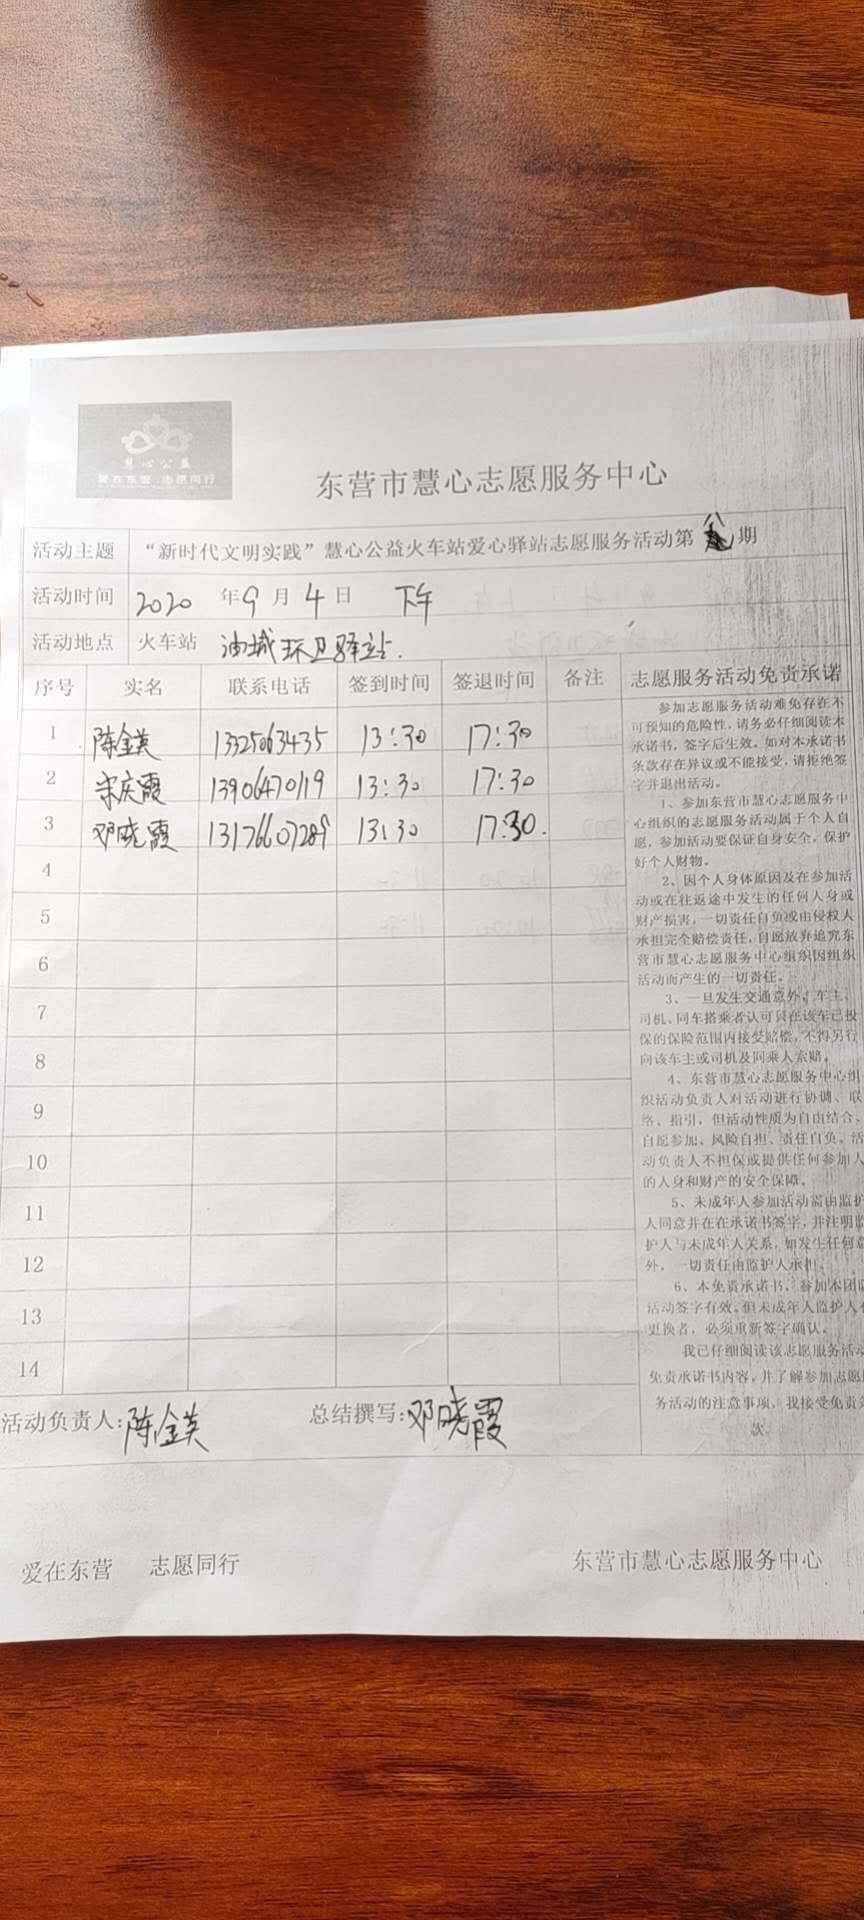 慧心公益
爱在东营 志愿同行
东营市慧心志愿服务中心
活动主题 “新时代文明实践”慧心公益火车站爱心驿站志愿服务活动第八期
活动时间 2020 年 9 月 4 日 下午
活动地点 火车站 油城环卫驿站.
序号 实名 联系电话 签到时间 签退时间 备注 志愿服务活动免责承诺
1 陈金英 13325063435 13:30 17:30
2 宋庆霞 13906470119 13:30 17:30
3 邓晓霞 13176607289 13:30 17:30.
4
5
6
7
8
9
10
11
12
13
14
参加志愿服务活动难免存在不
可预知的危险性，请务必仔细阅读本
承诺书，签字后生效。如对本承诺书
条款存在异议或不能接受，请拒绝签
字并退出活动。
1、参加东营市慧心志愿服务中
心组织的志愿服务活动属于个人自
愿，参加活动要保证自身安全，保护
好个人财物。
2、因个人身体原因及在参加活
动或在往返途中发生的任何人身或
财产损害，一切责任自负或由侵权人
承担完全赔偿责任，自愿放弃追究东
营市慧心志愿服务中心组织因组织
活动而产生的一切责任。
3、一旦发生交通意外，车主、
司机、同车搭乘者认可只在该车已投
保的保险范围内接受赔偿，不得另行
向该车主或司机及同乘人索赔。
4、东营市慧心志愿服务中心组
织活动负责人对活动进行协调、联
络、指引，但活动性质为自由结合、
自愿参加、风险自担、责任自负。活
动负责人不担保或提供任何参加人
的人身和财产的安全保障。
5、未成年人参加活动需由监护
人同意并在在承诺书签字，并注明监
护人与未成年人关系，如发生任何意
外，一切责任由监护人承担。
6、本免责承诺书，参加本团队
活动签字有效。但未成年人监护人
更换者，必须重新签字确认。
我已仔细阅读该志愿服务活动
免责承诺书内容，并了解参加志愿
务活动的注意事项，我接受免责条
次
活动负责人：陈金英 总结撰写：邓晓霞
爱在东营 志愿同行 东营市慧心志愿服务中心